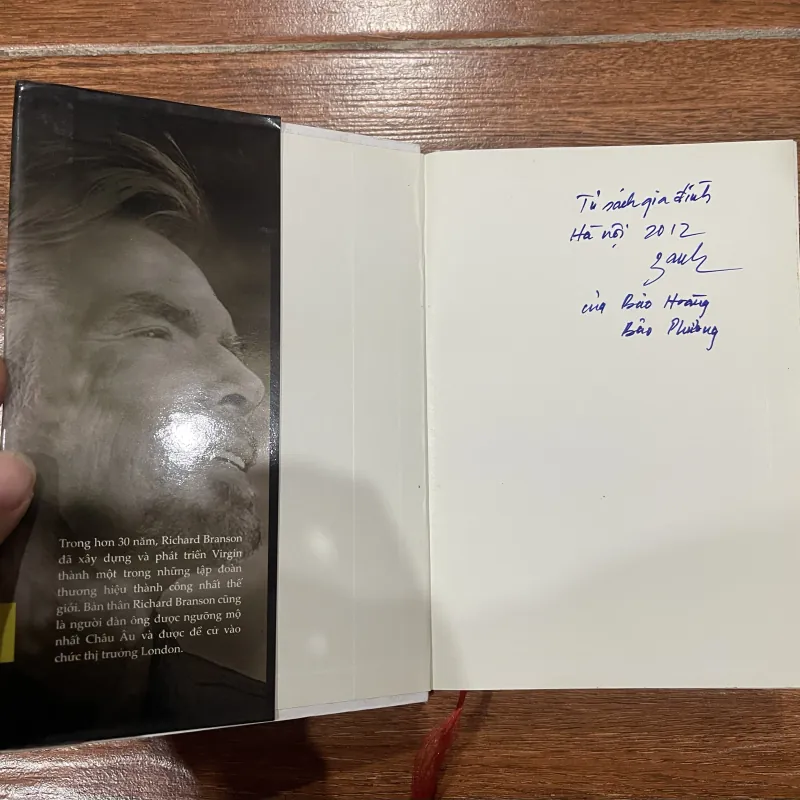 Trong hơn 30 năm, Richard Branson
đã xây dựng và phát triển Virgin
thành một trong những tập đoàn
thương hiệu thành công nhất thế
giới. Bản thân Richard Branson cũng
là người đàn ông được ngưỡng mộ
nhất Châu Âu và được đề cử vào
chức thị trưởng London.
Tủ sách gia đình
Hà nội 2012
của Bảo Hoàng
Bảo Phương